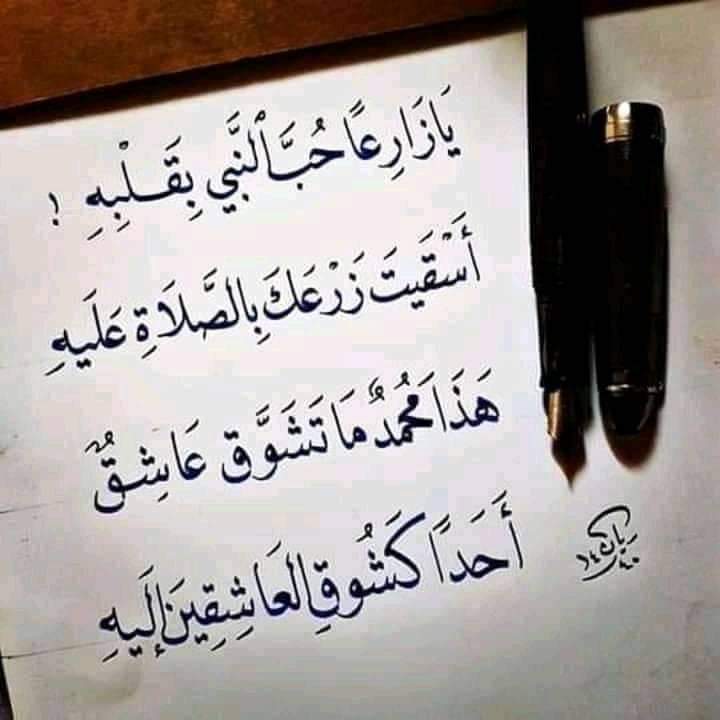 يَازَارِعًا حُبَّ ٱلنَّبِي بِقَلْبِهِ !
أَسْقَيتَ زَرْعَكَ بِالصَّلَاةِ عَلَيهِ
هَذَا مُحَمَدٌ مَا تَشَوَّقَ عَاشِقٌ
أَحَدًا كَشُوقِ العَاشِقِينَ إِلَيهِ